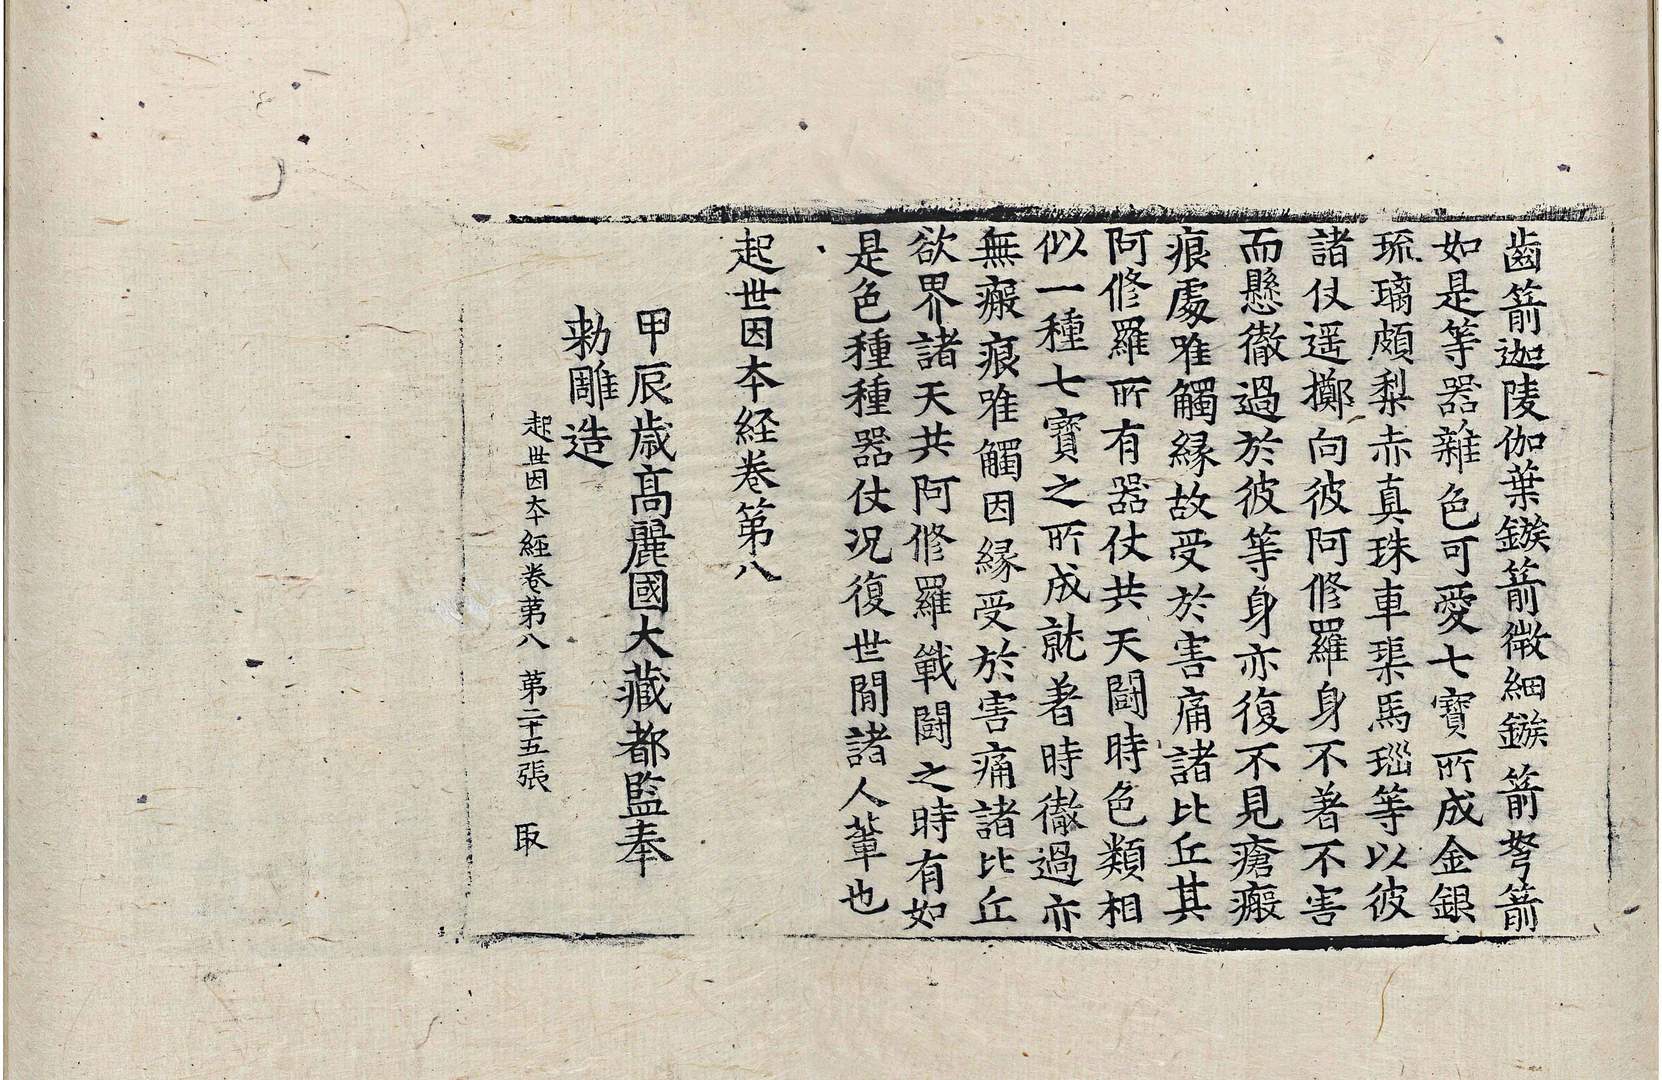 齒箭迦陵伽葉鏃箭微細鏃箭弩箭
如是等器雜色可愛七寶所成金銀
琉璃頗梨赤真珠車𤦲馬瑙等以彼
諸仗遥擲向彼阿修羅身不著不害
而懸徹過於彼等身亦復不見瘡瘢
痕處唯觸緣故受於害痛諸比丘其
阿修羅所有器仗共天闘時色類相
似一種七寶之所成就著時徹過亦
無瘢痕唯觸因緣受於害痛諸比丘
欲界諸天共阿修羅戰闘之時有如
是色種種器仗况復世間諸人輩也
起世因夲経卷第八
甲辰歲高麗國大藏都監奉
勅雕造
起世因夲經卷第八 第二十五張 㝡